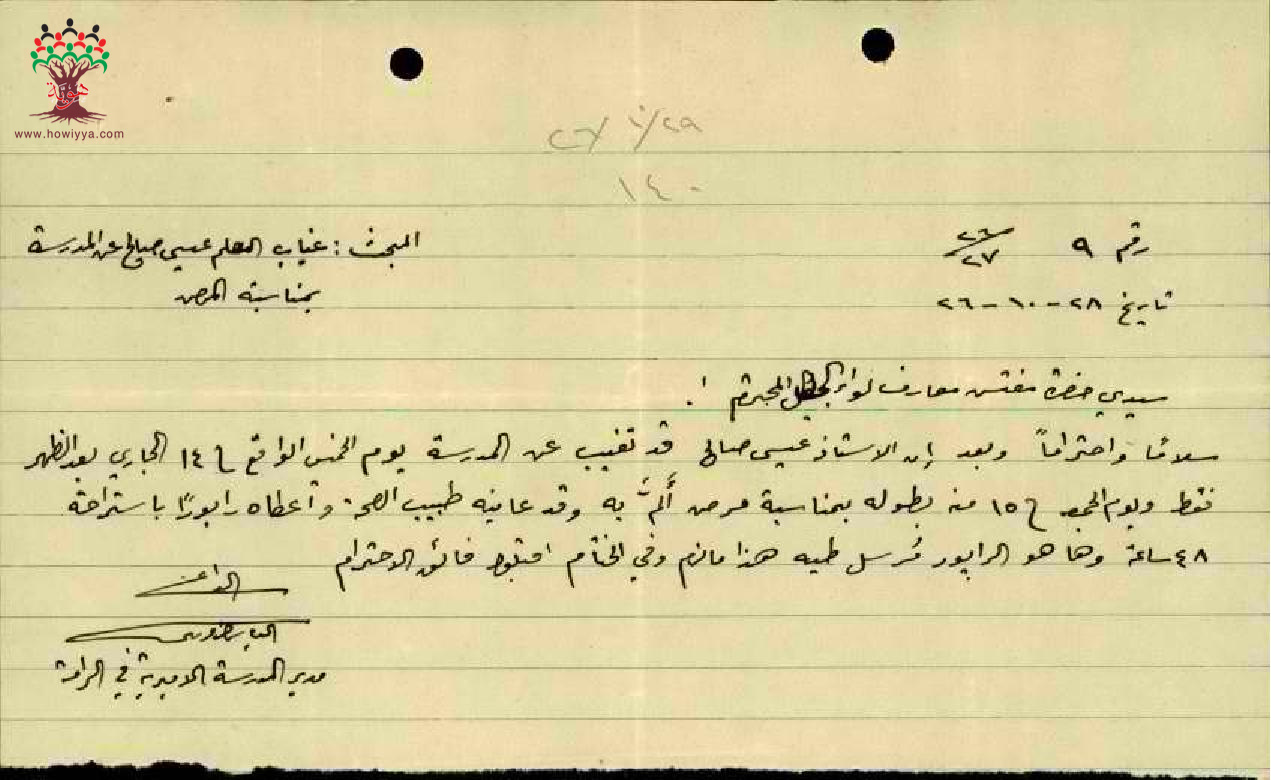 هوية
www.howiyya.com
٢٩/١٠/٢٦
١٤٠
رقم ٩ ٢٦/٢٧
البحث : غياب المعلم عيسى صالح عن المدرسة
بمناسبة المرض
تاريخ ٢٨-١٠-٢٦
سيدي حضرة مفتش معارف لواء المحترم !.
سلامًا واحترامًا وبعد إن الاستاذ عيسى صالح قد تغيب عن المدرسة يوم الخميس الواقع في ١٤ الجاري بعد الظهر
فقط ويوم الجمعة في ١٥ منه بطوله بمناسبة مرض أَلمَّ به وقد عاينه طبيب الصحة وأعطاه رابورًا باستراحة
٤٨ ساعة وها هو الرابور مُرسل طيه هذا مالزم وفي الختام اقبلوا فائق الاحترام
الداعي
الياس
مدير المدرسة الاميرية في الرامة